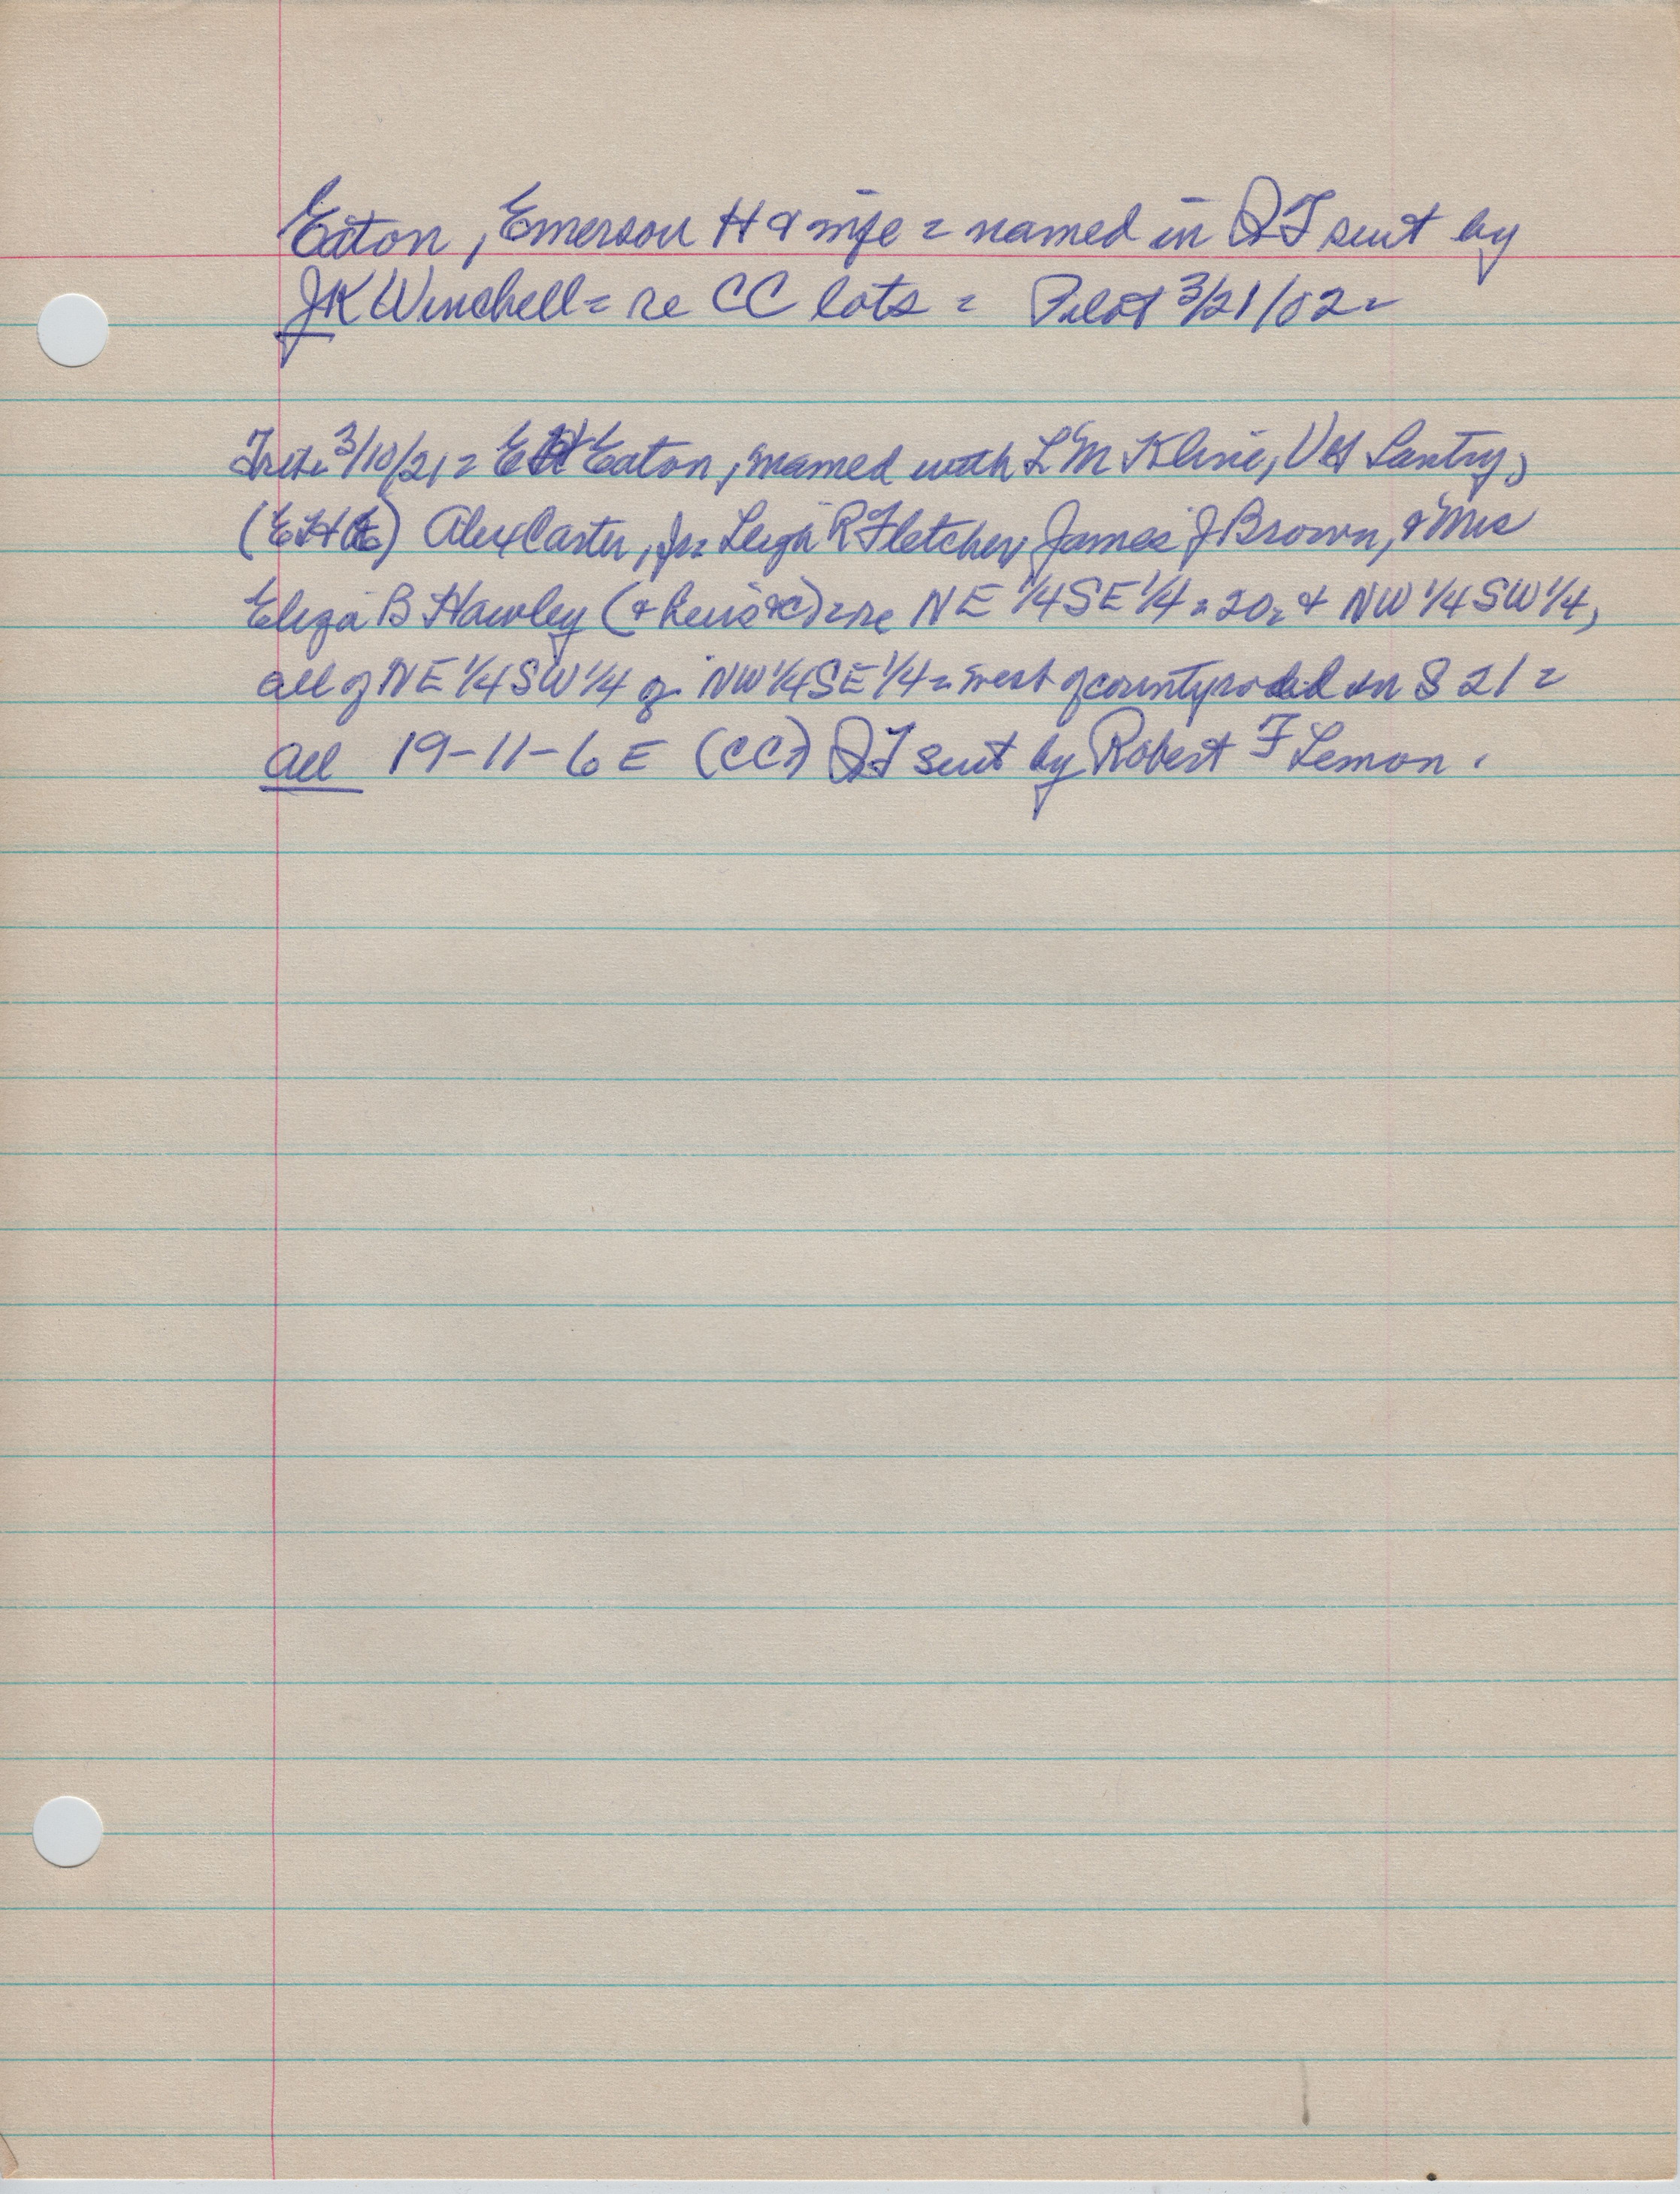 Eaton, Emerson H & wife = named in QT suit by
JK Winchell = re CC lots = Pilot 3/21/02 =
3/10/21 = EH Eaton, named with L M Kline, Santry,
(EHE) Alex Carter, Jr = Leigh R Fletcher, James J Brown, & Mrs
Eliza B Hawley (& heirs &c) = re NE 1/4 SE 1/4 = 20 = & NW 1/4 SW 1/4,
all of NE 1/4 SW 1/4 & NW 1/4 SE 1/4 = west of county road in S 21 =
all 19-11-6 E (CC) QT suit by Robert F Lemon.